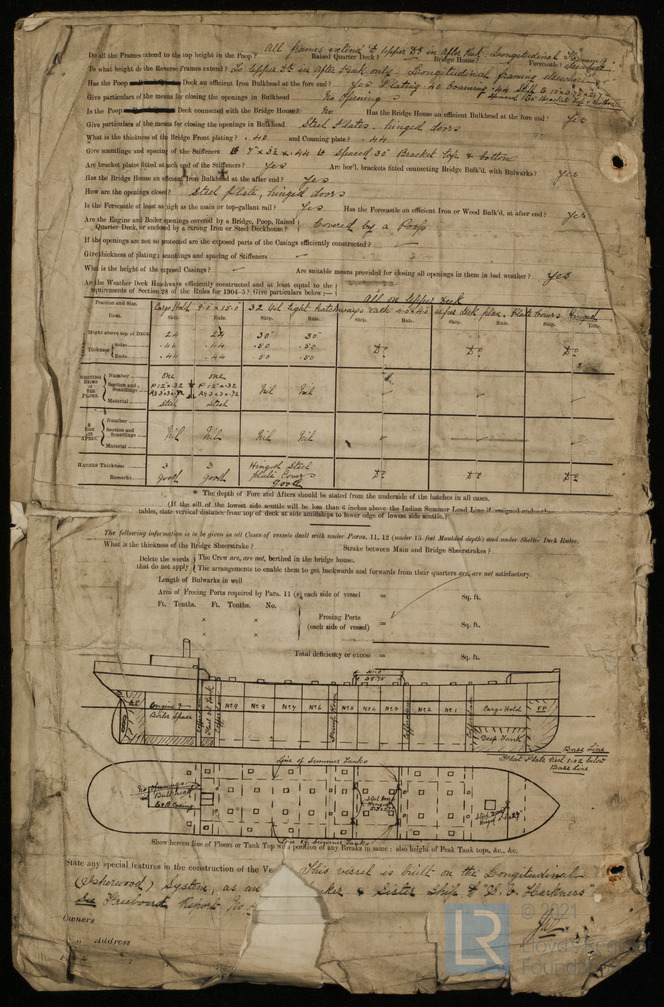 Do all the Frames extend to the top height in the Poop? All frames extend to upper Dk in After Peak. Longitudinal Framing
Raised Quarter Deck? Bridge House? Forecastle? elsewhere
To what height do the Reverse Frames extend? To Upper Dk in After Peak only. Longitudinal framing elsewhere
Has the Poop Deck an efficient Bulkhead at the fore end? Yes Plating .40
Give particulars of the means for closing the openings in Bulkhead No Openings
Is the Poop Deck connected with the Bridge House? No Has the Bridge House an efficient Bulkhead at the fore end? Yes
Give particulars of the means for closing the openings in Bulkhead Steel Plates, hinged doors
What is the thickness of the Bridge Front plating? .40 and Coaming plate? .44
Give scantlings and spacing of the Stiffeners 7 x 32 x .44 Spaced 30" Bracket top & bottom
Are bracket plates fitted at each end of the Stiffeners? Yes Are hor'l. brackets fitted connecting Bridge Bulk'd. with Bulwarks? Yes
Has the Bridge House an efficient Iron Bulkhead at the after end? Yes
How are the openings closed? Steel plate, hinged doors
Is the Forecastle at least as high as the main or top-gallant rail? Yes Has the Forecastle an efficient Iron or Wood Bulk'd, at after end? Yes
Are the Engine and Boiler openings covered by a Bridge, Poop, Raised
Quarter Deck, or enclosed by a Strong Iron or Steel Deckhouse? Covered by a Poop
If the openings are not so protected are the exposed parts of the Casings efficiently constructed?
Give thickness of plating; scantlings and spacing of Stiffeners
What is the height of the exposed Casings? Are suitable means provided for closing all openings in them in bad weather? Yes
Are the Weather Deck Hatchways efficiently constructed and at least equal to the
requirements of Section 28 of the Rules for 1904-5? Give particulars below:— All on Upper Deck
Position and Size. Cargo Hold 9.0 x 15.0 32 Oil tight hatchways each 4.0 x 4.0 as per deck plan. Plate covers
Item. Ship. Rule. Ship. Rule. Ship. Rule. Ship. Rule. Ship. Rule.
Height above top of DECK 24 24 30" 30"
Thickness Sides .44 .44 .50 .50 Do Do Do
Ends .44 .44 .50 .50
Number one one
Section and Scantlings P 12 x .32 P 12 x .32 Nil Nil
Material Steel Steel
Number
Section and Scantlings Nil Nil Nil Nil
Material
HATCHES Thickness 3 3 Hinged Steel
Remarks Good Good Plate Covers Good Do Do Do
* The depth of Fore and Afters should be stated from the underside of the hatches in all cases.
(If the sill of the lowest side scuttle will be less than 6 inches above the Indian Summer Load Line if assigned under the
tables, state vertical distance from top of deck at side amidships to lower edge of lowest side scuttle.)
The following information is to be given in all Cases of vessels dealt with under Paras. 11, 12 (under 15 feet Moulded depth) and under Shelter Deck Rules.
What is the thickness of the Bridge Sheerstrake? Strake between Main and Bridge Sheerstrakes?
Delete the words that do not apply
The Crew are, are not, berthed in the bridge house.
The arrangements to enable them to get backwards and forwards from their quarters are, are not satisfactory.
Length of Bulwarks in well
Area of Freeing Ports required by Para. 11 (e) each side of vessel = Sq. ft.
Ft. Tenths. Ft. Tenths. No.
× ×
Freeing Ports (each side of vessel) = Sq. ft.
× ×
Total deficiency or excess = Sq. ft.
Engine & Boiler Space
No 9 No 8 No 7 No 6 No 5 No 4 No 3 No 2 No 1
Cargo Hold
F.P.
Deep Tank
Base Line
Flat Plate Keel 1.02 below
Base Line
Line of Summer Tanks
Line of Summer Tanks
Show hereon line of Floors or Tank Top with position of any Breaks in same; also height of Peak Tank tops, &c., &c.
State any special features in the construction of the Ve This vessel is built on the Longitudinal
(Isherwood) System, as an ker & Sister Ship to "H. Harkness"
See Freeboard Report No.
Owners
Address
© 2021
LR
Lloyd's Register
Foundation